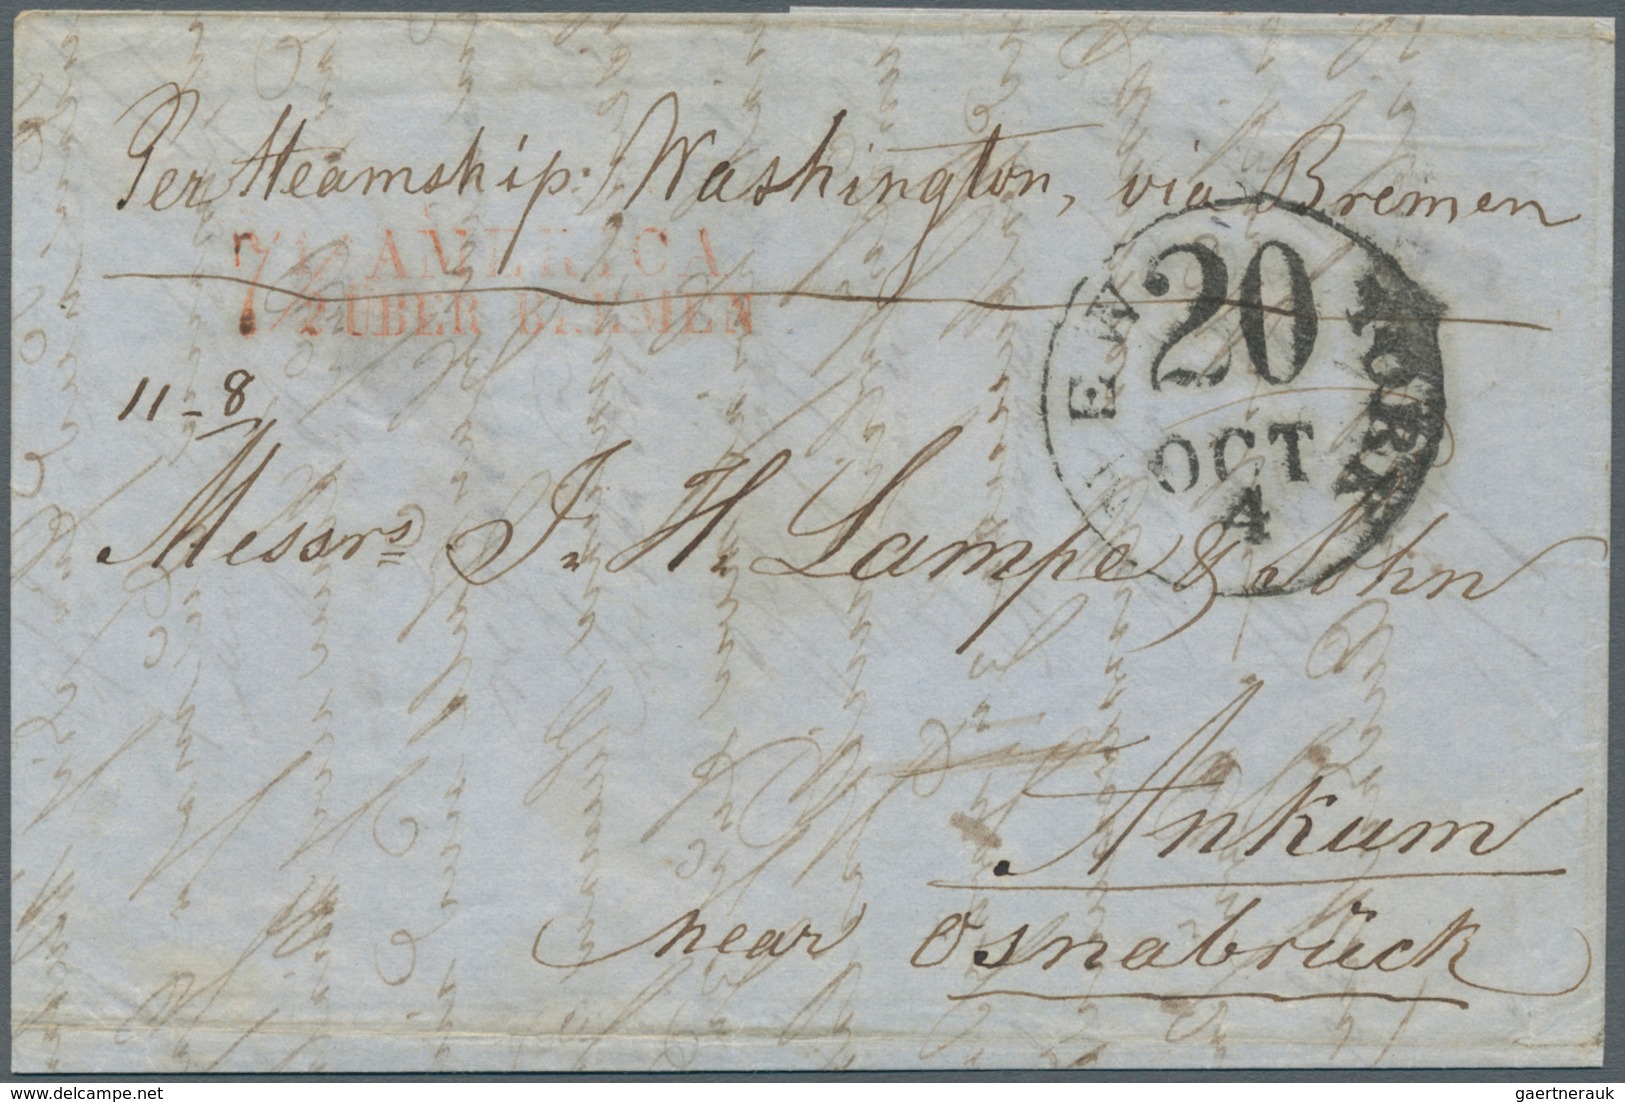 Per Steamship Washington, via Bremen
AMERICA
ÜBER BREMEN
NEW YORK
20
OCT
4
11-8
Messrs J. H. Lampe & Sohn
Ankum
near Osnabrück
gaertnerauk